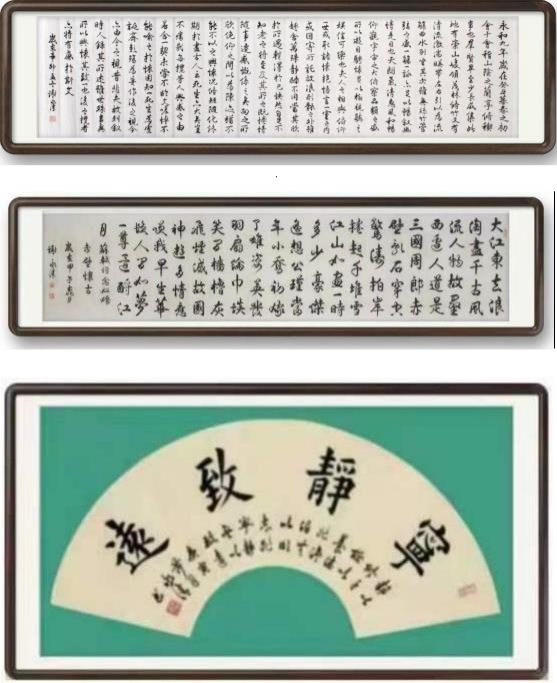 永和九年歲在癸丑暮春之初
會于會稽山陰之蘭亭脩禊
事也羣賢畢至少長咸集此
地有崇山峻領茂林脩竹又有
清流激湍暎帶左右引以為流
觴曲水列坐其次雖無絲竹管
弦之盛一觴一詠亦足以暢敘幽
情是日也天朗氣清惠風和暢
仰觀宇宙之大俯察品類之盛
所以遊目騁懷足以極視聽之
娛信可樂也夫人之相與俯仰
一世或取諸懷抱悟言一室之內
或因寄所託放浪形骸之外雖
趣舍萬殊靜躁不同當其欣
於所遇暫得於己快然自足不
知老之將至及其所之既倦情
隨事遷感慨係之矣向之所
欣俛仰之間以為陳迹猶不
能不以之興懷況脩短隨化終
期於盡古人云死生亦大矣豈
不痛哉每攬昔人興感之由
若合一契未嘗不臨文嗟悼不
能喻之於懷固知一死生為虛
誕齊彭殤為妄作後之視今
亦由今之視昔悲夫故列敘
時人錄其所述雖世殊事異
所以興懷其致一也後之攬者
亦將有感於斯文
大江東去浪
淘盡千古風
流人物故壘
西邊人道是
三國周郎赤
壁亂石穿空
驚濤拍岸
捲起千堆雪
江山如畫一時
多少豪傑
遙想公瑾當
年小喬初嫁
了雄姿英發
羽扇綸巾談
笑間檣櫓灰
飛煙滅故國
神遊多情應
笑我早生華
髮人間如夢
一尊還酹江
月 蘇軾詞念奴嬌
赤壁懷古
寧靜致遠